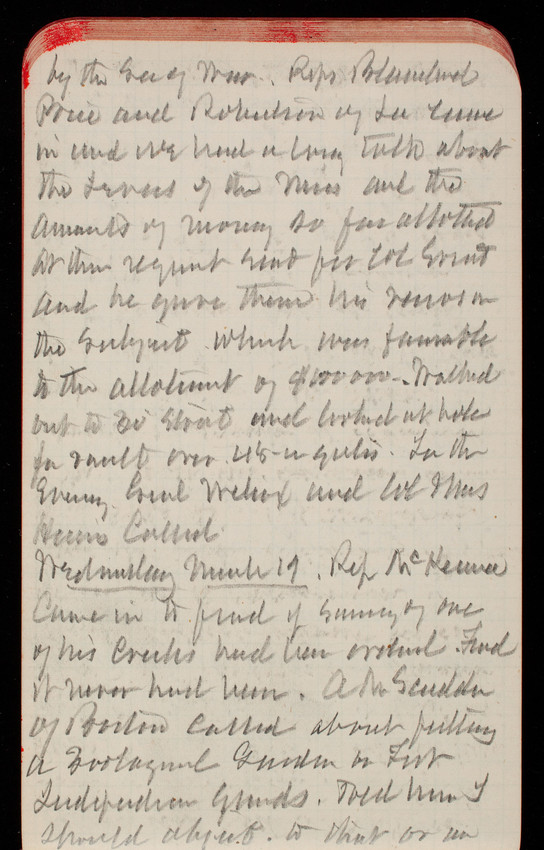 by the Sec of War. Reps Blanchard
Price and Robertson of La came
in and we had a long talk about
the Levees of the Miss and the
amounts of money so far allotted
At their request sent for Col Grant
and he gave them his views on
the subject which was favorable
to the allotment of $100 000 - Walked
out to Street and looked at hole
for vault over In the
Evening Genl Wilcox and Col Thos
Harris Called
Wednesday March 19. Rep McKenna
Came in to find if survey of one
of his Creeks had been ordered. Find
it never had been. A Mr Scudder
of Boston called about putting
a Zoological Garden on Fort
Independence Grounds. Told him I
should object to that or an